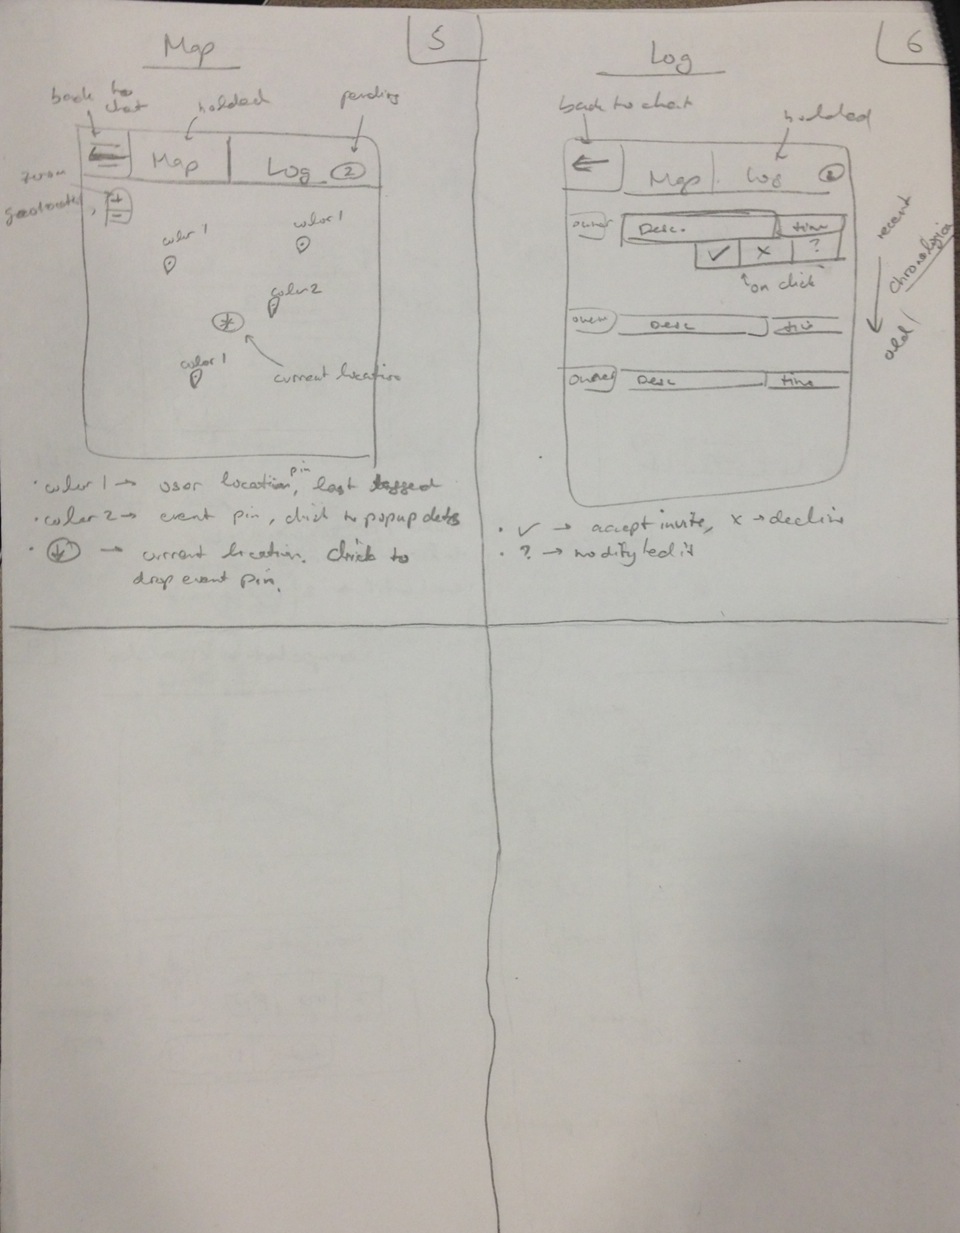 Map
5
back to chat
pending
Map
Log 2
zoom
+
-
color 1
color 1
color 2
color 1
current location
• color 1 → user location pin, last logged
• color 2 → event pin, click to popup
• → current location. Click to
drop event pin.
Log
6
back to chat
Map
Log
owner
Desc.
time
✓
x
?
on click
owner
Desc
owner
Desc
time
recent
Chronologic
old
• ✓ → accept invite, x → decline
• ? → modify/edit